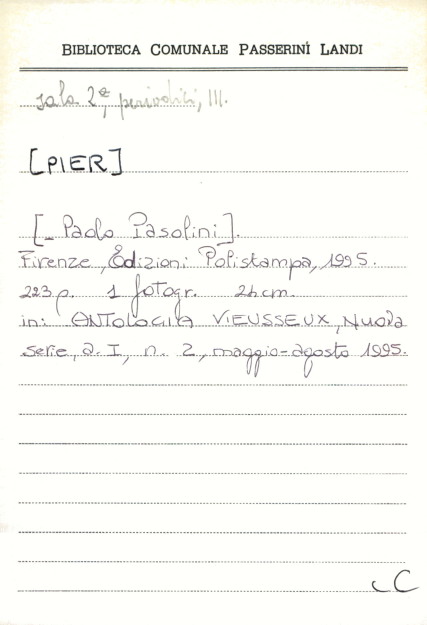 BIBLIOTECA COMUNALE PASSERINI LANDI
sala 2ª, periodici, III.
[PIER]
[_ Paolo Pasolini].
Firenze, Edizioni Polistampa, 1995.
223 p. 1 fotogr. 24 cm.
in: ANTOLOGIA VIEUSSEUX, Nuova
serie, a. I, n. 2, maggio-agosto 1995.
C